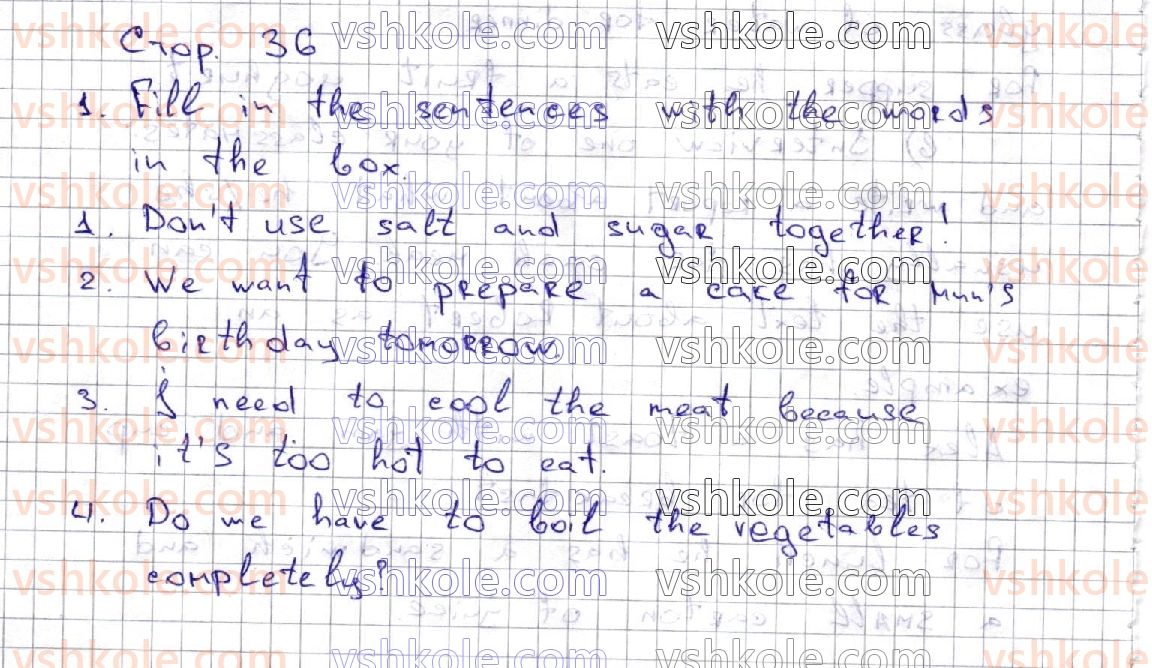 Стор. 36
1. Fill in the sentences with the words
in the box.
1. Don't use salt and sugar together!
2. We want to prepare a cake for Mum's
birthday tomorrow.
3. I need to cool the meat because
it's too hot to eat.
4. Do we have to boil the vegetables
completely?
vshkole.com